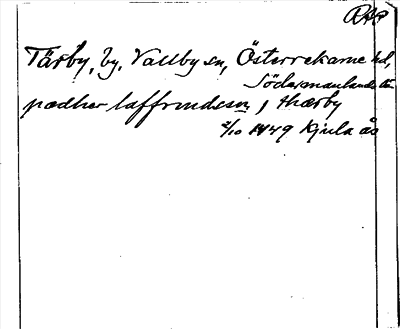 RAP
Tärby, by, Vallby sn, Österrekarne hd,
Södermanlands län
pædher laffrindsson j thærby
2/10 1449 Kjula ås